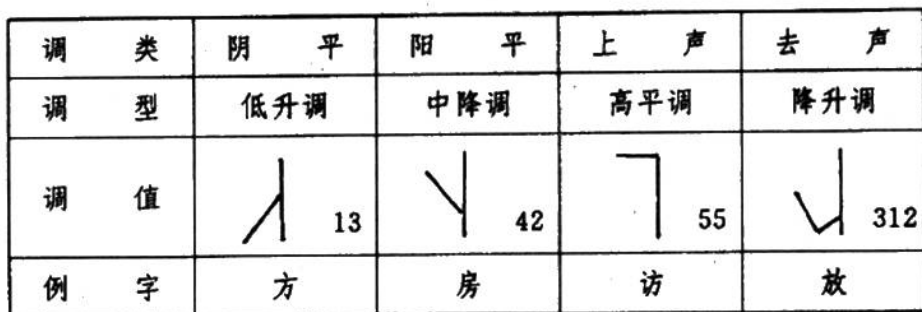 调类 阴平 阳平 上声 去声
调型 低升调 中降调 高平调 降升调
调值 13 42 55 312
例字 方 房 访 放